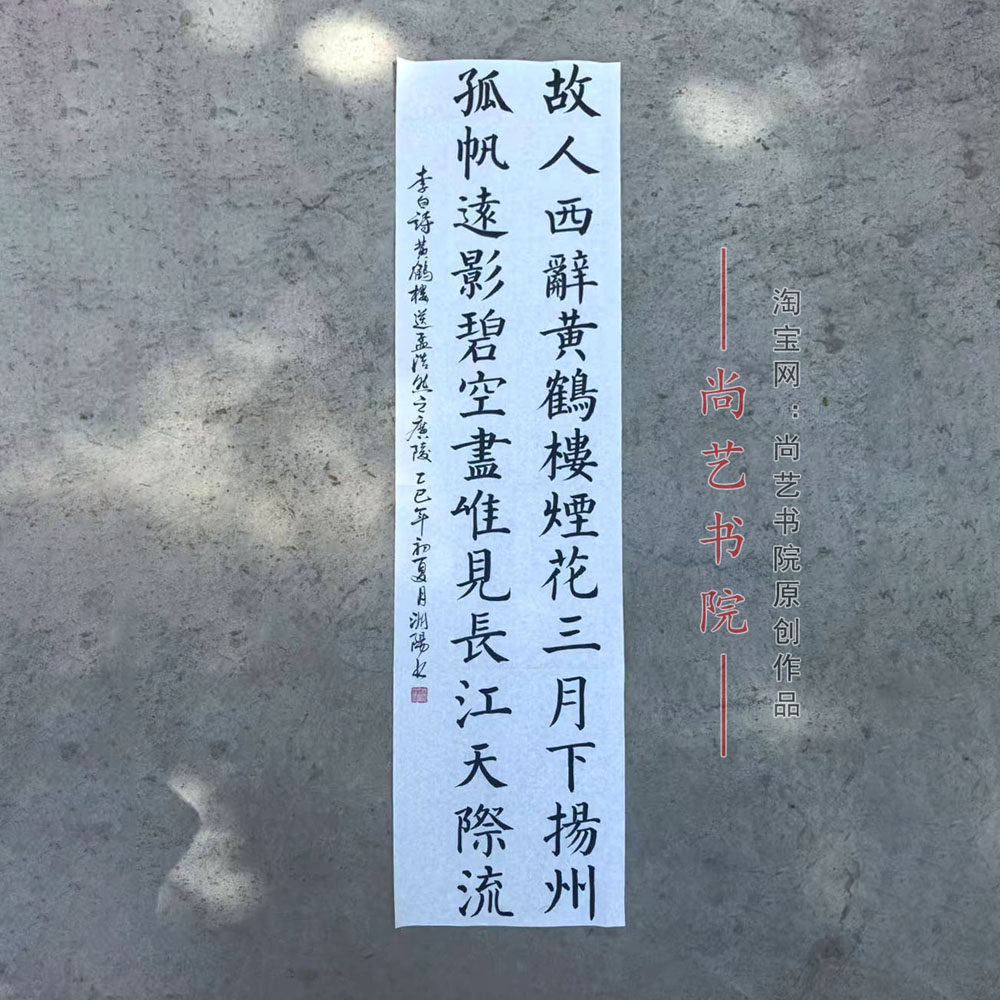 故人西辭黃鶴樓煙花三月下揚州
孤帆遠影碧空盡唯見長江天際流
李白詩黃鶴樓送孟浩然之廣陵 乙巳年初夏月湖陽書
尚艺书院
淘宝网：尚艺书院原创作品